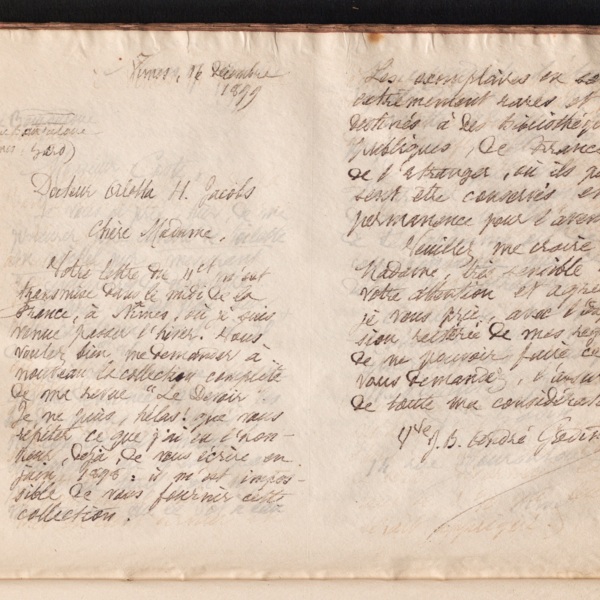 Nimes, 16 décembre
1899
Gard)
Docteur Aletta H. Jacobs
Chère Madame,
Votre lettre du 11 ct m'est
transmise dans le midi de la
France, à Nîmes, où je suis
venue passer l'hiver. Vous
voulez bien me demander à
nouveau la collection complète
de ma revue "Le Devoir".
Je ne puis, hélas! que vous
répéter ce que j'ai eu l'hon-
neur, déjà de vous écrire en
juin 1898: il m'est impos-
sible de vous fournir cette
collection.
Les exemplaires en
extrêmement rares et
destinés à des Bibliothèq
publiques, de France
de l'étranger, où ils
sent être conservés en
permanence pour l'aven
Veuillez me croire
Madame, très sensible
votre attention et agré
je vous prie, avec l'
sion réitérée de mes reg
de ne pouvoir faire ce
vous demandez, l'assur
de toute ma considérat
Vve J. B. André Godin